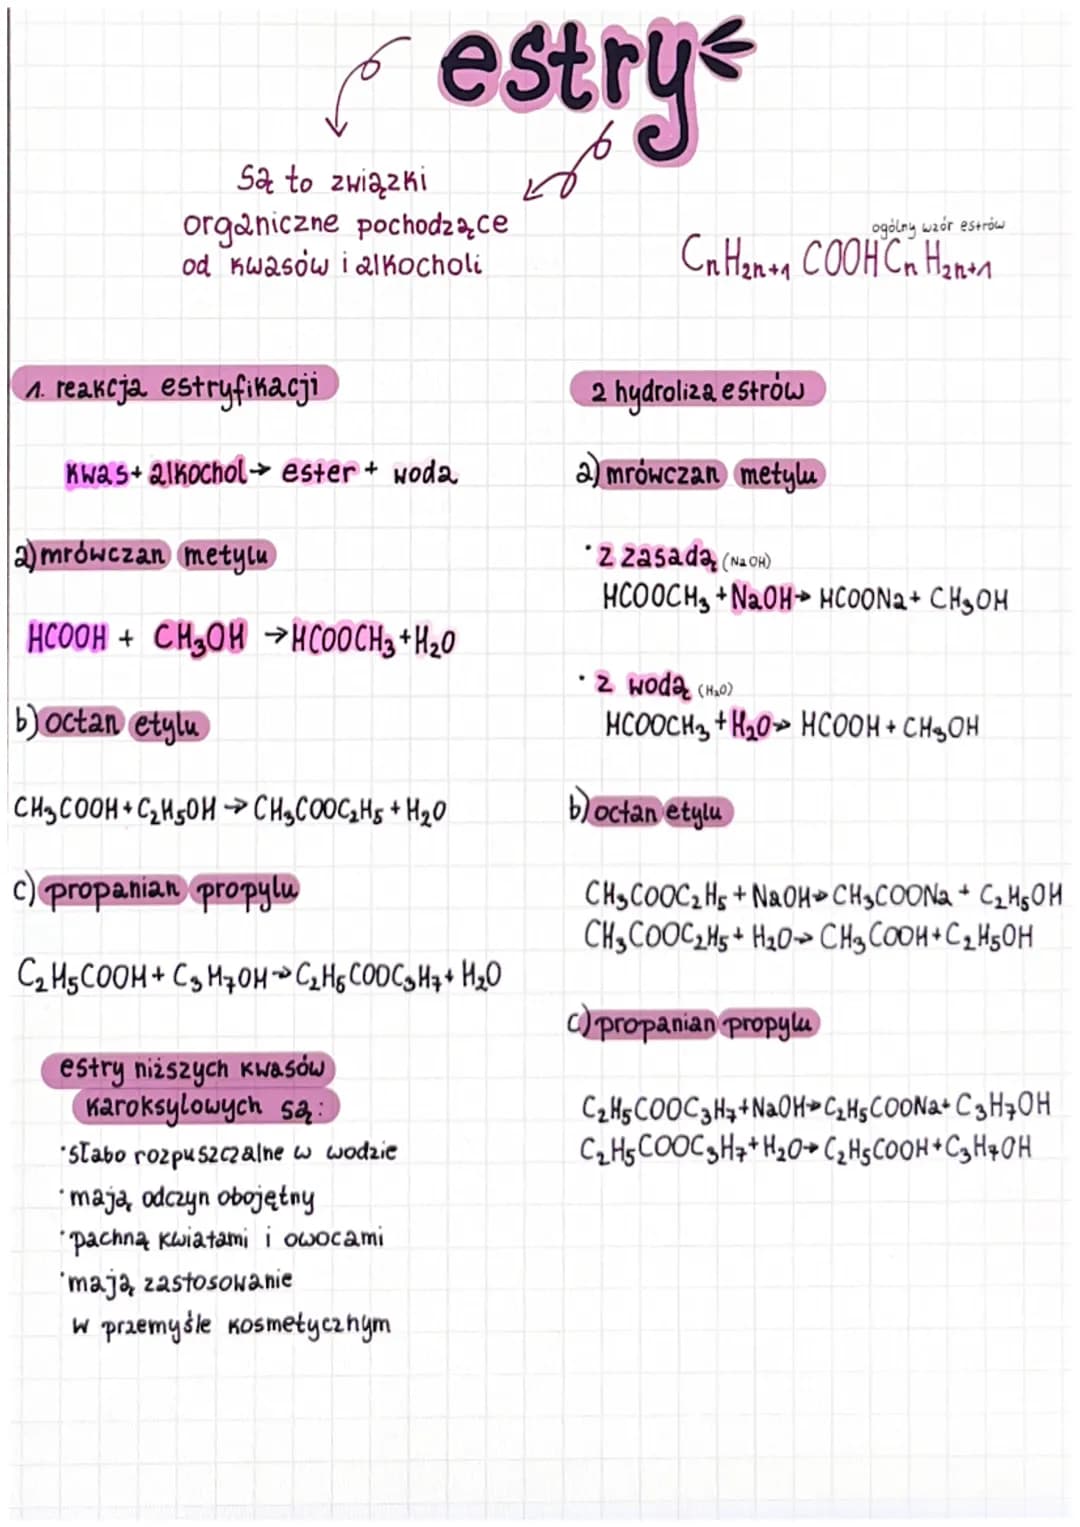 estry
są to związki
organiczne pochodzące
od kwasów i alkocholi
ogólny wzór estrów
CnH2n+1 COOHCn H2n+1
1. reakcja estryfikacji
kwas + alkochol → ester + woda
a) mrówczan metylu
HCOOH + CH3OH → HCOOCH3 + H2O
b) octan etylu
CH3COOH + C2H5OH → CH3COOC2H5 + H2O
c) propanian propylu
C2H5COOH + C3H7OH → C2H5COOC3H7 + H2O
estry niższych kwasów
karoksylowych są:
·słabo rozpuszczalne w wodzie
·mają odczyn obojętny
·pachną kwiatami i owocami
·mają zastosowanie
w przemyśle kosmetycznym
2 hydroliza estrów
a) mrówczan metylu
·z zasadą (NaOH)
HCOOCH3 + NaOH → HCOONa + CH3OH
·z wodą (H2O)
HCOOCH3 + H2O → HCOOH + CH3OH
b) octan etylu
CH3COOC2H5 + NaOH → CH3COONa + C2H5OH
CH3COOC2H5 + H2O → CH3COOH + C2H5OH
c) propanian propylu
C2H5COOC3H7 + NaOH → C2H5COONa + C3H7OH
C2H5COOC3H7 + H2O → C2H5COOH + C3H7OH